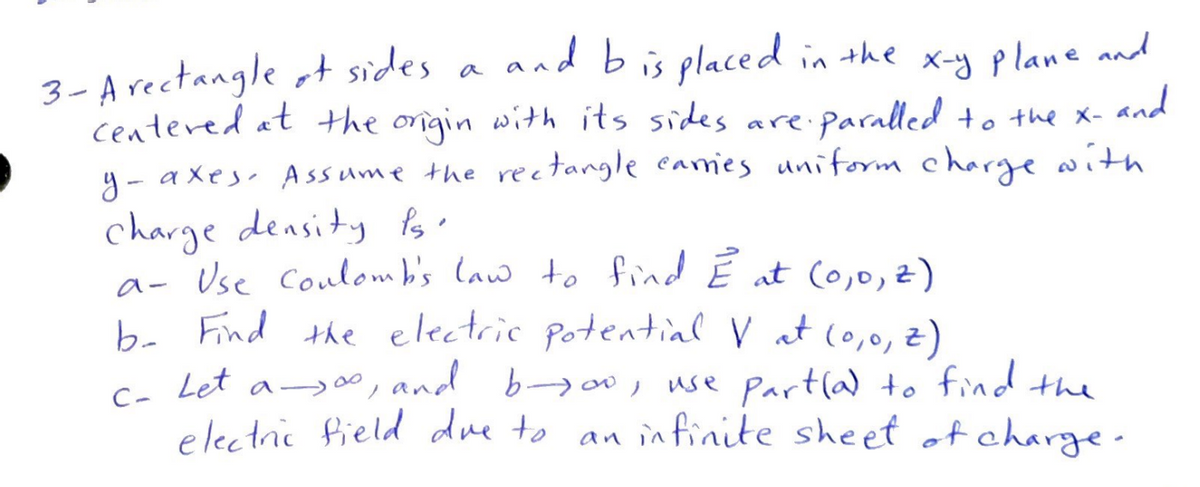 3- A rectangle of sides a and b is placed in the x-y plane and
centered at the origin with its sides are paralled to the x- and
y- axes. Assume the rectangle carries uniform charge with
charge density ρs.
a- Use Coulomb's law to find E⃗ at (0,0,z)
b- Find the electric potential V at (0,0,z)
c- Let a→∞, and b→∞, use part(a) to find the
electric field due to an infinite sheet of charge.